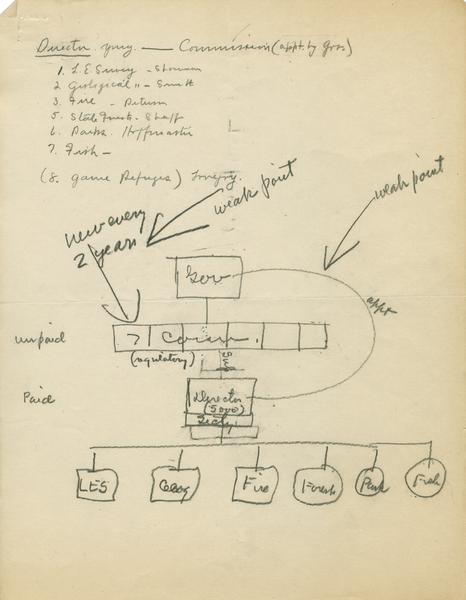 Director — Commission (appt. by Gov)
1. L.E. Survey -
2 Geological " - Smith
3 Fire -
5. State Forests -
6. Parks. Hoffmaster
7. Fish —
(8. Game Refuges)
weak point
weak point
new every
2 years
Gov
appt
unpaid
7 Comm.
(regulatory)
Paid
Director
(5000)
Secty
LES
Geog
Fire
Forests
Park
Fish